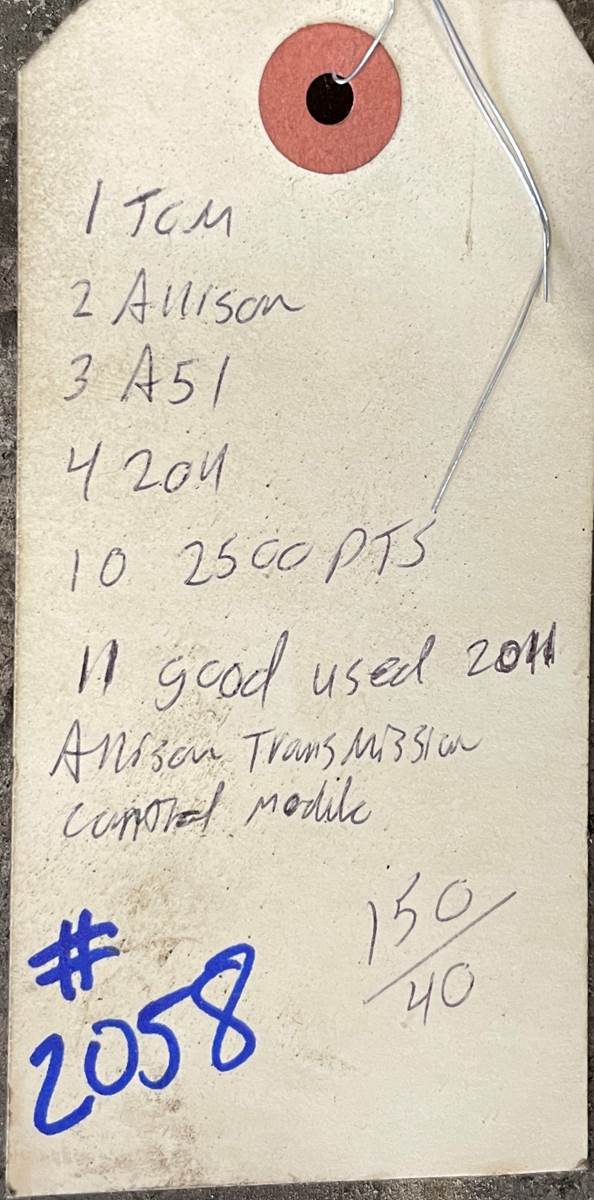 1 TCM
2 Allison
3 A51
4 2011
10 2500 PTS
11 good used 2011
Allison Transmission
Control Modile
150/40
#
2058